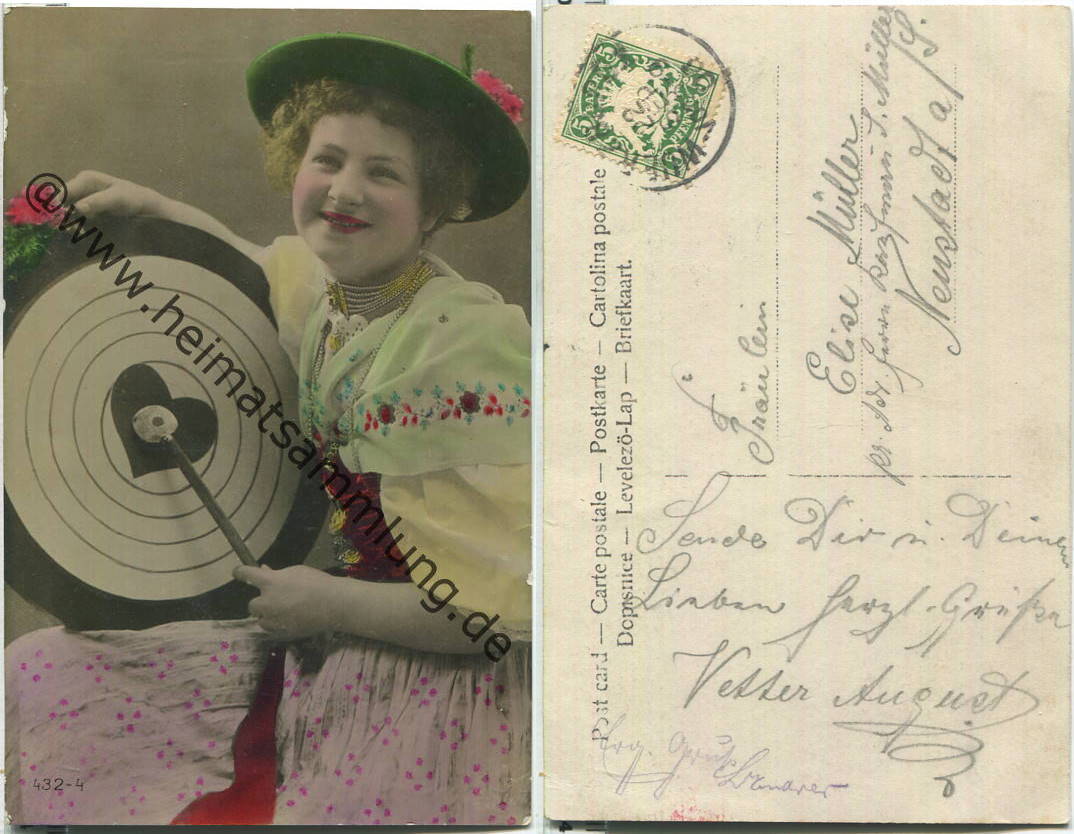 @www.heimatsammlung.de
432-4
5 BAYERN 5
5 PFENNIG 5
Post card — Carte postale — Postkarte — Cartolina postale
Dopisnice — Levelezö-Lap — Briefkaart.
Fräulein
Elise Müller
Herrn J. Müller
Neustadt a/
Sende Dir u. Deinen
Lieben herzl. Grüße
Vetter August
Gruß